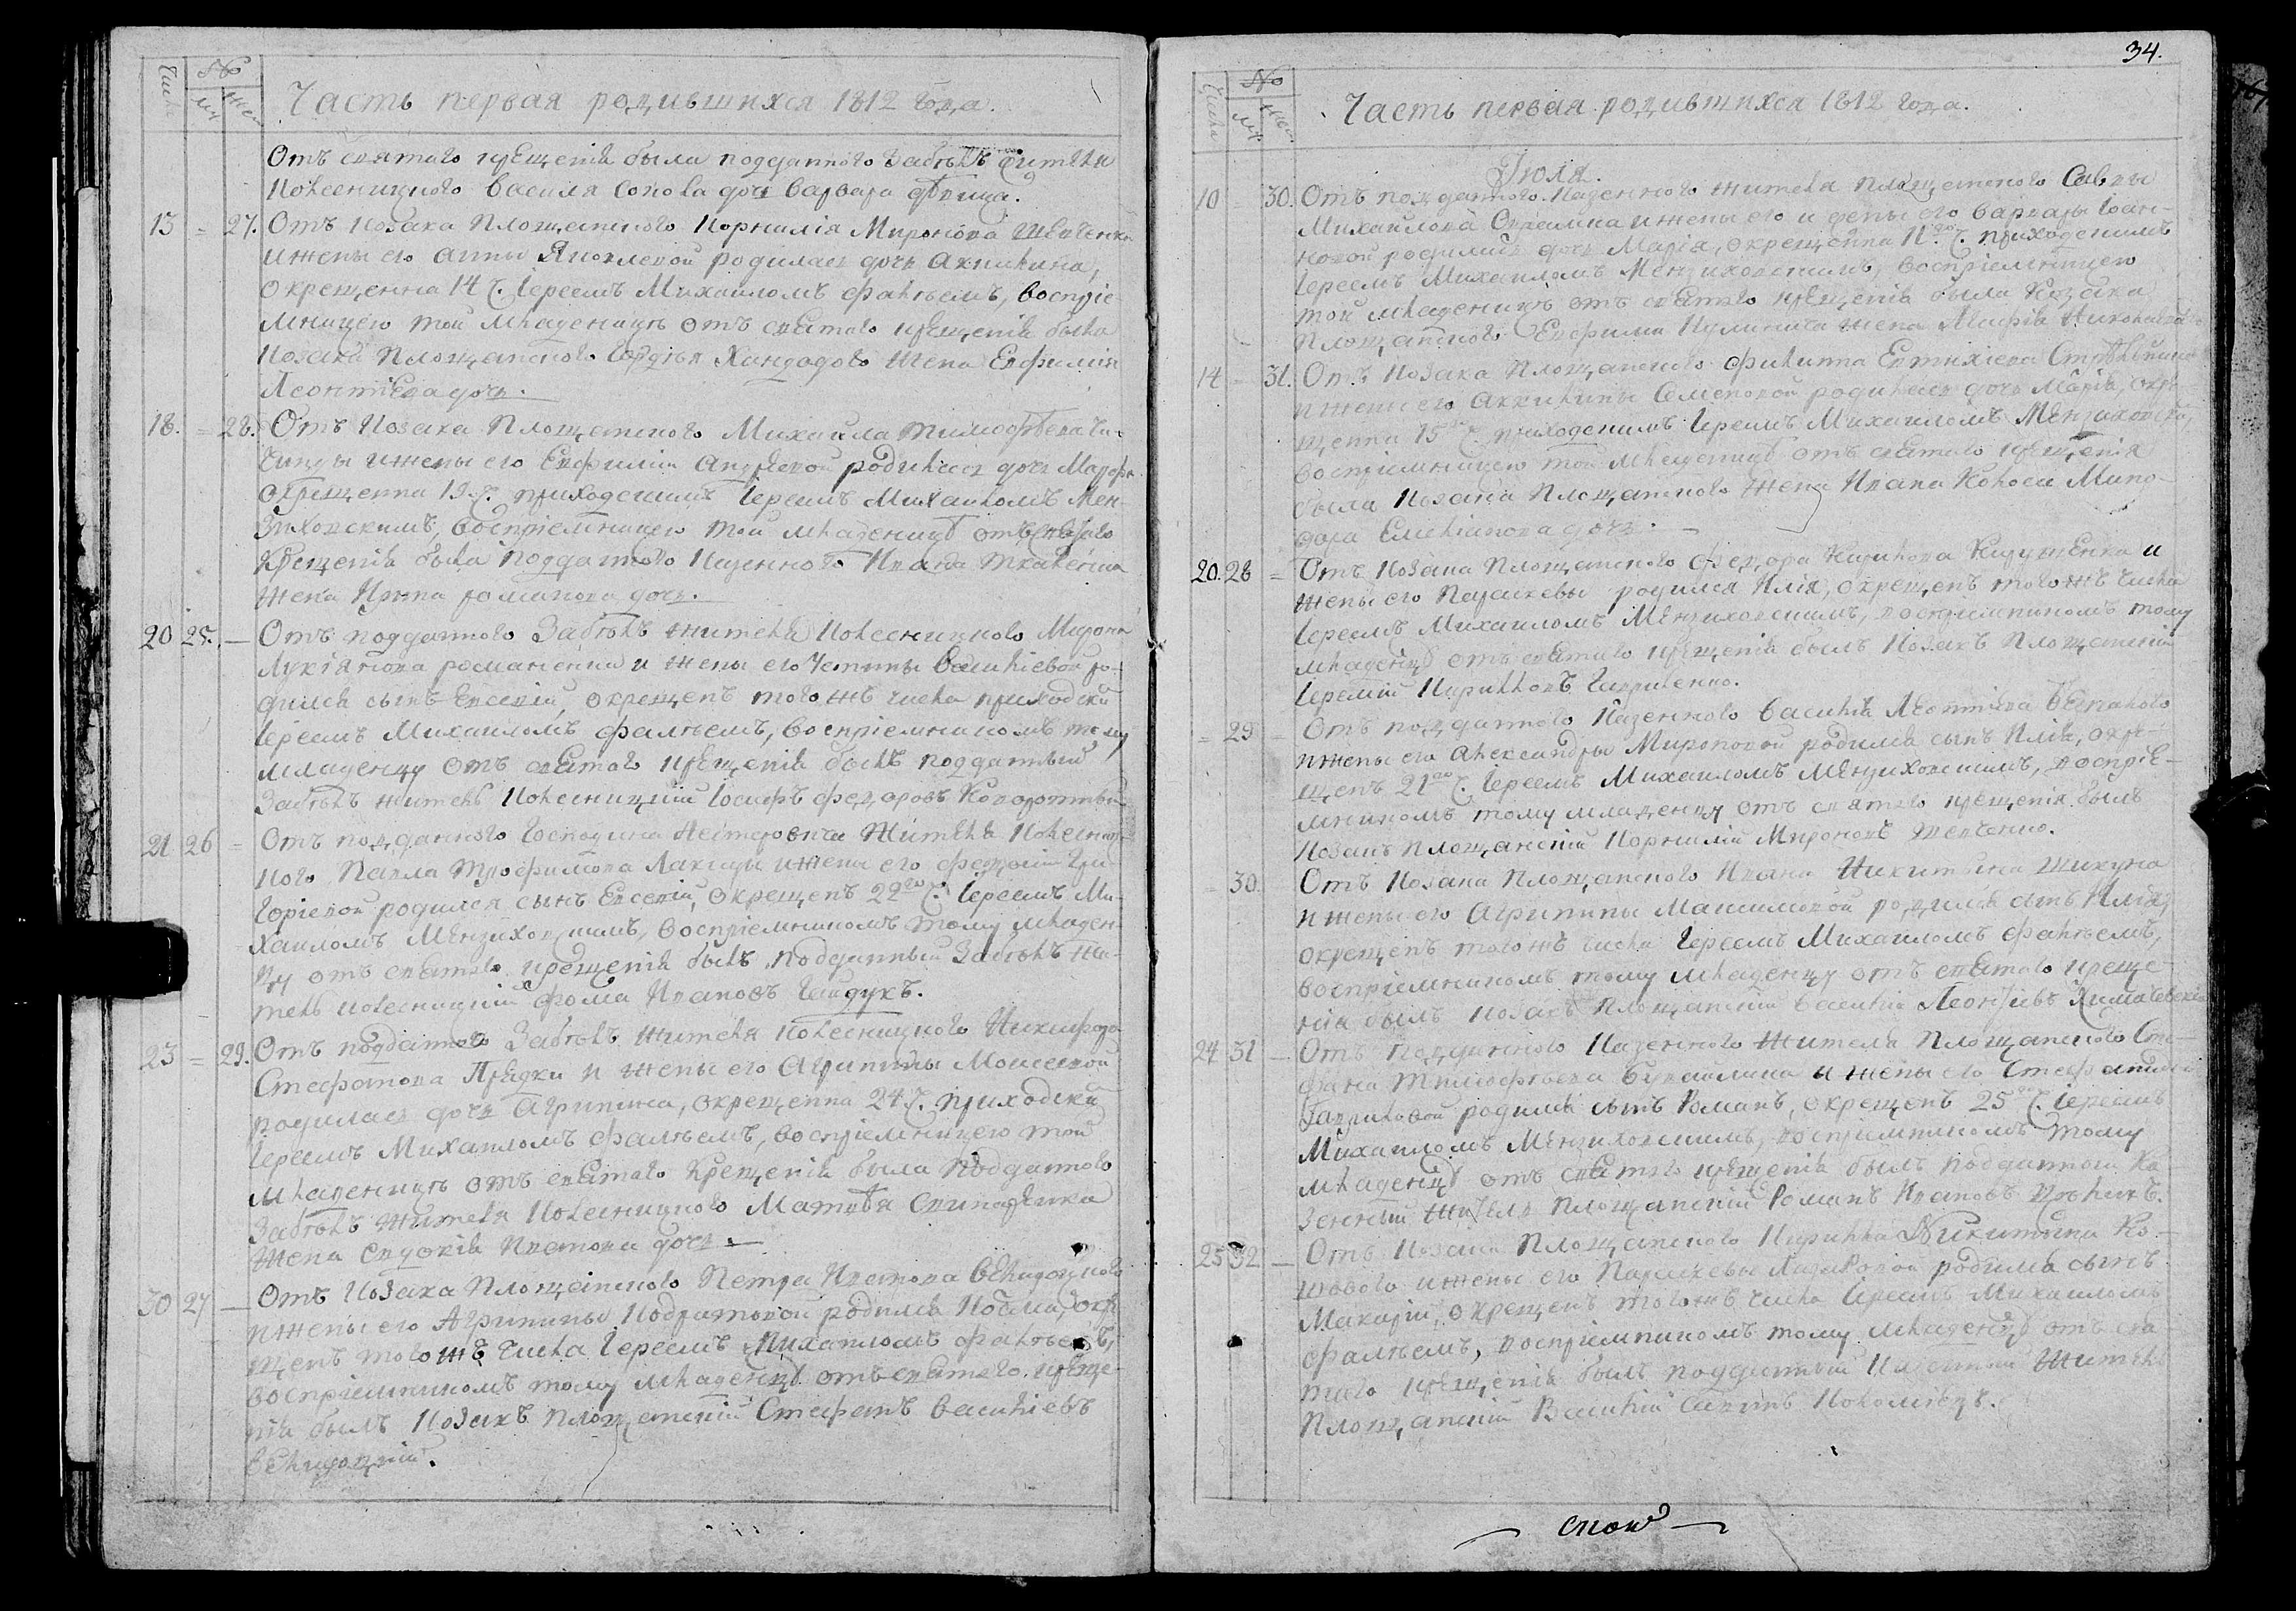 Числа № муж жен
Часть первая родившихся 1812 года.
Отъ святаго крещенія была подданного Забѣлѣ жителя
Колесницкого Василя Сокола дочь Варвара дѣвица.
13 = 27. Отъ козака Площанского Корнилія Миронова Шевченка
и жены его Анны Яковлевой родилась дочь Акилина,
окрещенна 14 ч. Іереемъ Михаиломъ Фалѣемъ, воспріе-
мницею той младеницѣ отъ святаго крещенія была
козака Площанского Гордѣя жена Евфимія
Леонтіева дочь.
18. = 28. Отъ козака Площанского Михаила Тимофѣева
и жены его Евфиміи Андреевой родилась дочь Марфа
окрещенна 19 ч. приходскимъ Іереемъ Михаиломъ Мен-
зиховскимъ, воспріемницею той младеницѣ отъ святаго
крещенія была подданного казенного Ивана
жена Ирина Романова дочь.
20 25. — Отъ подданного Забѣлѣ жителя Колесницкого Мирона
Лукіянова Романенка и жены его Васильевой ро-
дился сынъ Евсевій, окрещенъ того жъ числа приходскимъ
Іереемъ Михаиломъ Фалѣемъ, воспріемникомъ тому
младенцу отъ святаго крещенія былъ подданный
Забѣлѣ житель Колесницкій Іосифъ Федоровъ
21 26 = Отъ подданного Господина Нестеровича жителя Колесниц-
кого Павла Трофимова и жены его Гри-
горіевой родился сынъ Евсевій, окрещенъ 22го ч. Іереемъ Ми-
хаиломъ Мензиховскимъ, воспріемникомъ тому младен-
цу отъ святаго крещенія былъ подданный Забѣлѣ жи-
тель Колесницкій Фома Ивановъ Гайдукъ.
23 = 29. Отъ подданного Забѣлѣ жителя Колесницкого Никифора
Стефанова и жены его Агрипины Моисеевой
родилась дочь Агрипина, окрещенна 24 ч. приходскимъ
Іереемъ Михаиломъ Фалѣемъ, воспріемницею той
младеницѣ отъ святаго крещенія была подданного
Забѣлѣ жителя Колесницкого Матвѣя
жена Евдокія Иванова дочь.
30 27 — Отъ козака Площанского Петра Иванова
и жены его Агрипины Кодратовой родился Козма, окре-
щенъ того жъ числа Іереемъ Михаиломъ Фалѣемъ,
воспріемникомъ тому младенцу отъ святаго креще-
нія былъ козакъ Площанскій Стефанъ Василіевъ
34.
Числа № муж жен
Часть первая родившихся 1812 года.
Іюля.
10 = 30. Отъ подданного казенного жителя Площанского Саввы
Михайлова и жены его Варвары Іоан-
новой родилась дочь Марія, окрещенна 11го ч. приходскимъ
Іереемъ Михаиломъ Мензиховскимъ, воспріемницею
той младеницѣ отъ святаго крещенія была козака
Площанского Евфима жена Николаева
14 = 31. Отъ козака Площанского Филиппа Евтихіева
и жены его Аккилины Семеновой родилась дочь Марія, окре-
щенна 15го ч. приходскимъ Іереемъ Михаиломъ Мензиховскимъ,
воспріемницею той младеницѣ отъ святаго крещенія
была козака Площанского жена Ивана
дора Емеліанова дочь.
20. 28 = Отъ козака Площанского Федора Кирилова и
жены его Параскевы родился Илія, окрещенъ того жъ числа
Іереемъ Михаиломъ Мензиховскимъ, воспріемникомъ тому
младенцу отъ святаго крещенія былъ козакъ Площанскій
Іеремій Кириловъ Гавриленко.
= 29 = Отъ подданного казенного Василія Леонтіева
и жены его Александры Мироновой родился сынъ Илія, окре-
щенъ 21го ч. Іереемъ Михаиломъ Мензиховскимъ, воспріе-
мникомъ тому младенцу отъ святаго крещенія былъ
козакъ Площанскій Корнилій Мироновъ Шевченко.
= 30. Отъ козака Площанского Ивана Никитина
и жены его Агрипины Максимовой родился сынъ Илія,
окрещенъ того жъ числа Іереемъ Михаиломъ Фалѣемъ,
воспріемникомъ тому младенцу отъ святаго креще-
нія былъ козакъ Площанскій Василій Леонтіевъ
24 31 — Отъ подданного казенного жителя Площанского Сте-
фана Тимофѣева и жены его Стефаниды
Гавриловой родился сынъ Романъ, окрещенъ 25го ч. Іереемъ
Михаиломъ Мензиховскимъ, воспріемникомъ тому
младенцу отъ святаго крещенія былъ подданный ка-
зенный житель Площанскій Романъ Ивановъ
25 32 — Отъ козака Площанского Кирилла Никитина
и жены его Параскевы родился сынъ
Макарій, окрещенъ того жъ числа Іереемъ Михаиломъ
Фалѣемъ, воспріемникомъ тому младенцу отъ свя-
таго крещенія былъ подданный казенный житель
Площанскій Василій Савинъ Коломіецъ.